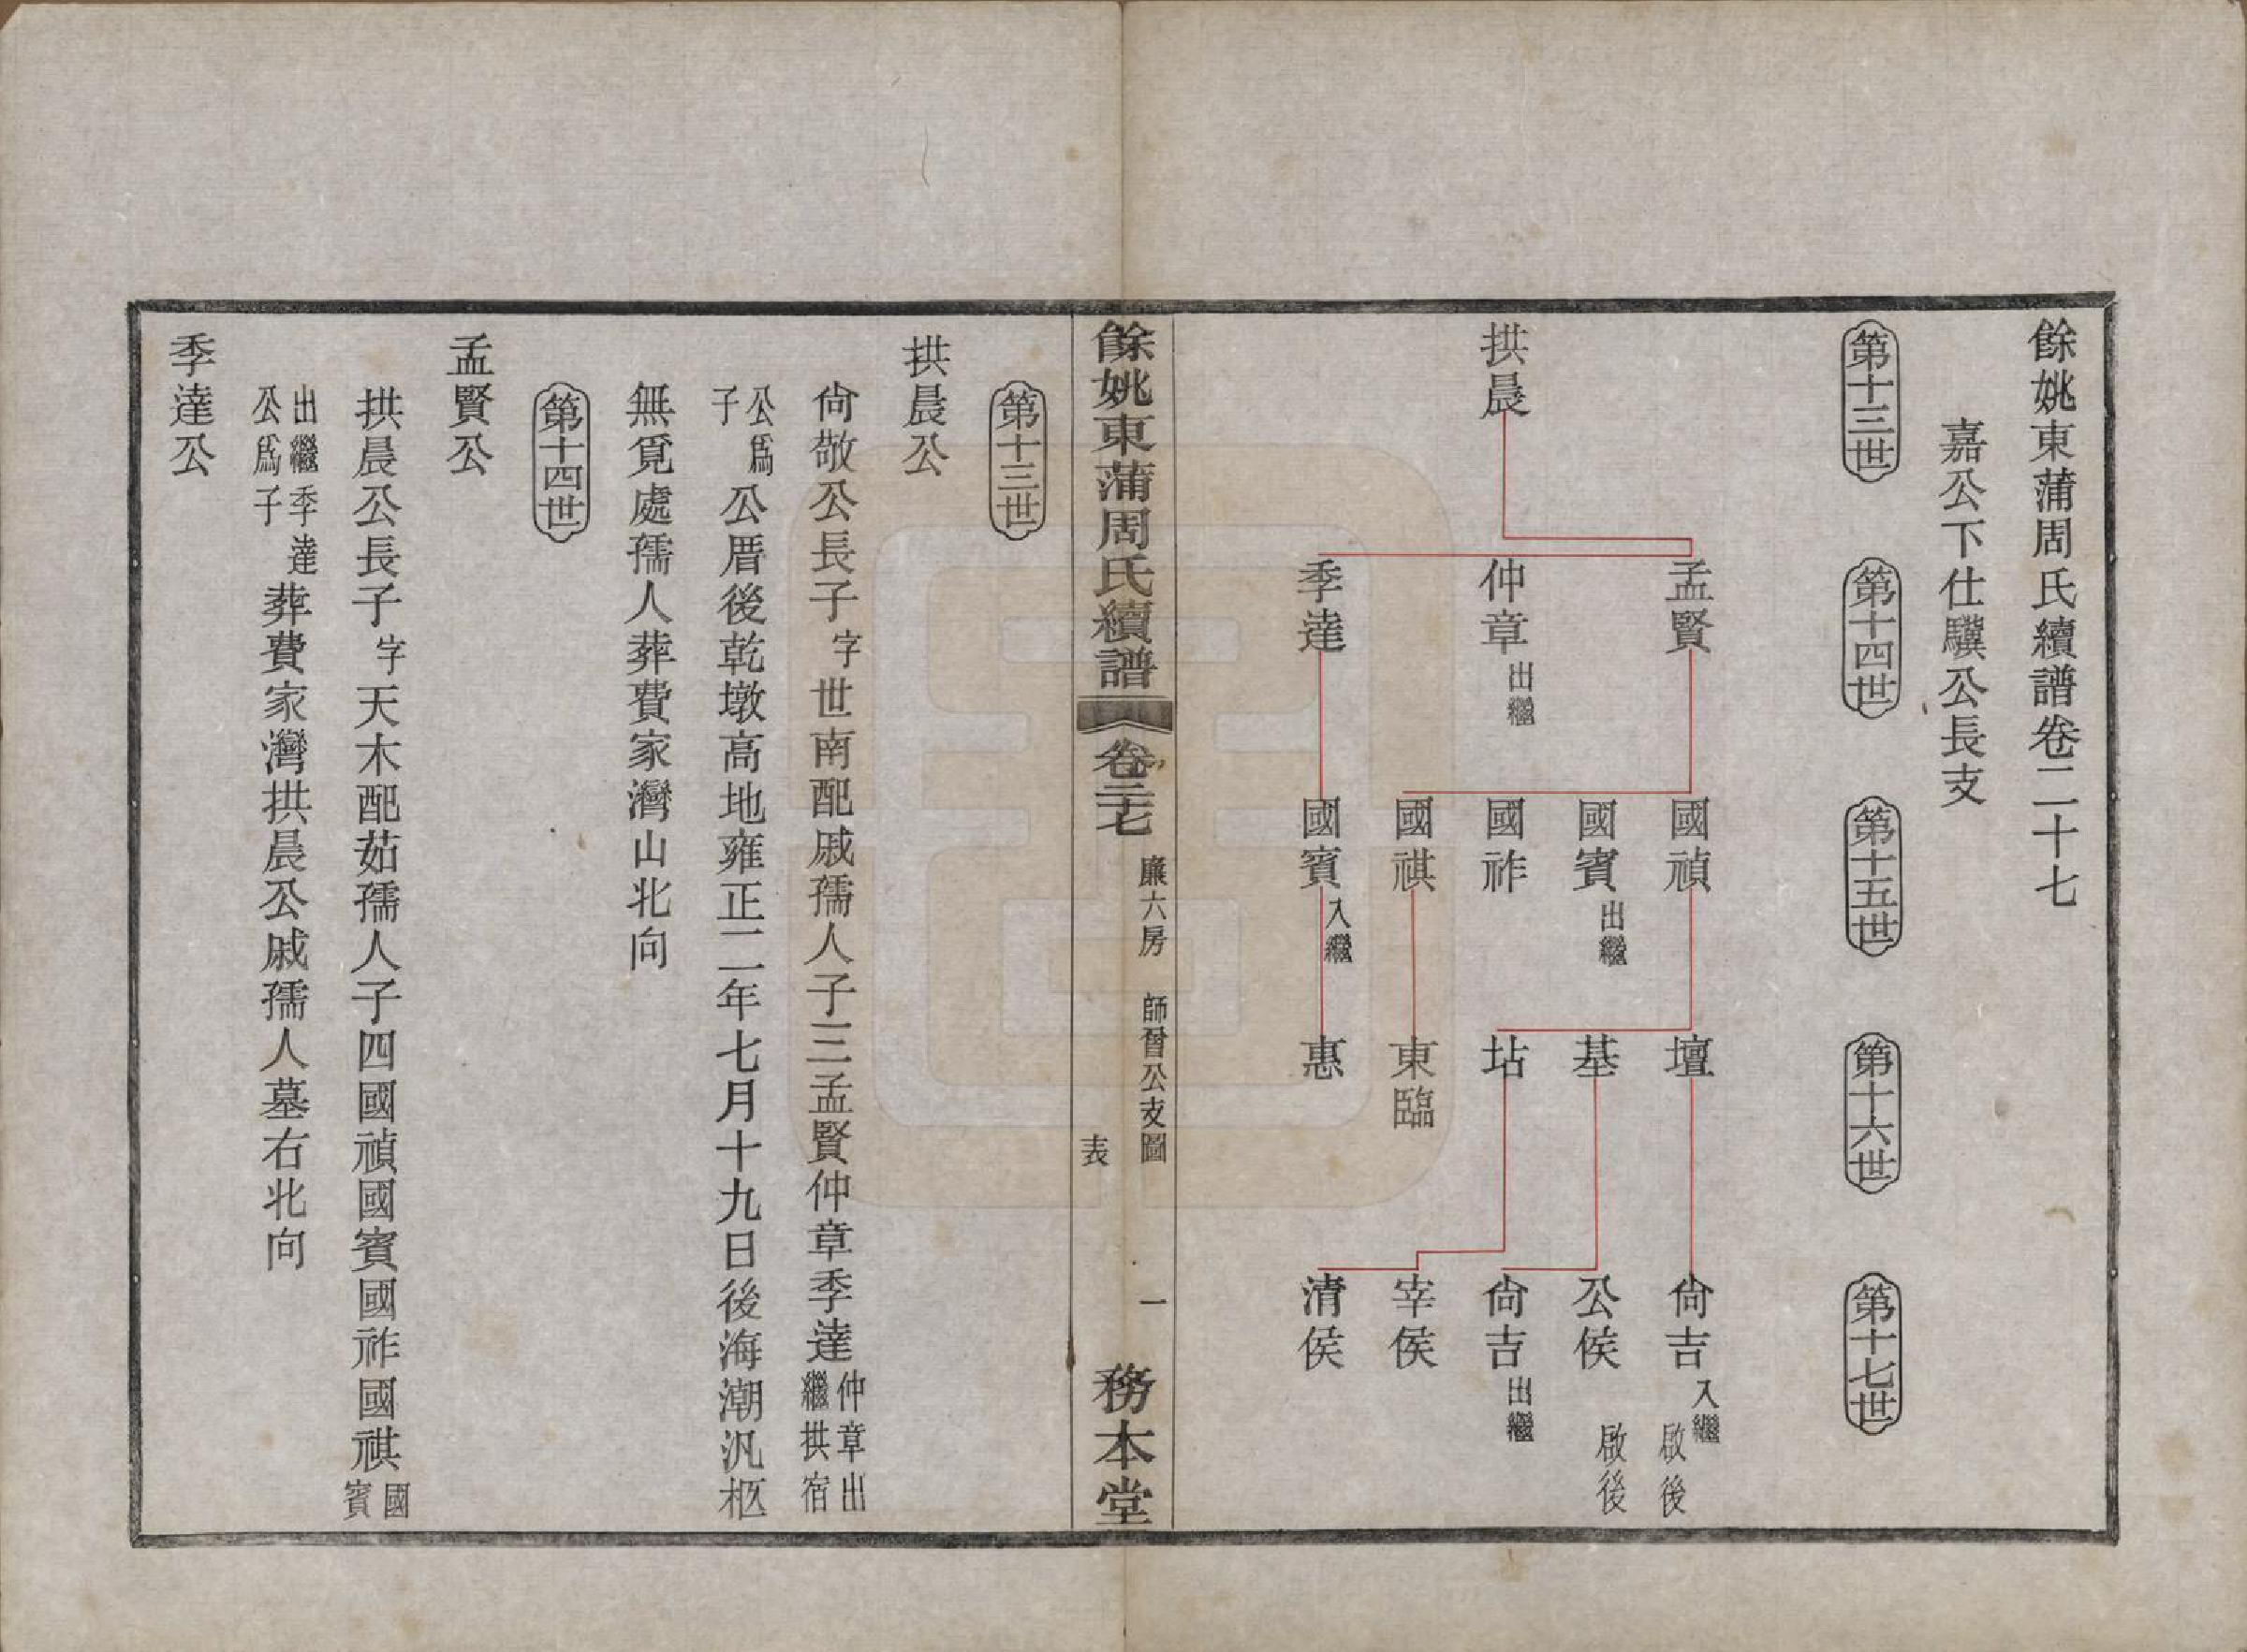 餘姚東蒲周氏續譜卷二十七
嘉公下仕驥公長支
第十三世
第十四世
第十五世
第十六世
第十七世
拱晨
孟賢
仲章出繼
季達
國禎
國賓出繼
國祚
國祺
國賓入繼
壇
基
坫
東臨
惠
尙吉入繼 啟後
公侯 啟後
尙吉出繼
宰侯
清侯
餘姚東蒲周氏續譜 卷二十七 廉六房 師晉公支圖 表 一 務本堂
第十三世
拱晨公
尙敬公長子字世南配戚孺人子三孟賢仲章季達仲章出繼拱宿
公爲子公厝後乾墩高地雍正二年七月十九日後海潮汎柩
無覓處孺人葬費家灣山北向
第十四世
孟賢公
拱晨公長子字天木配茹孺人子四國禎國賓國祚國祺國賓
出繼季達公爲子葬費家灣拱晨公戚孺人墓右北向
季達公